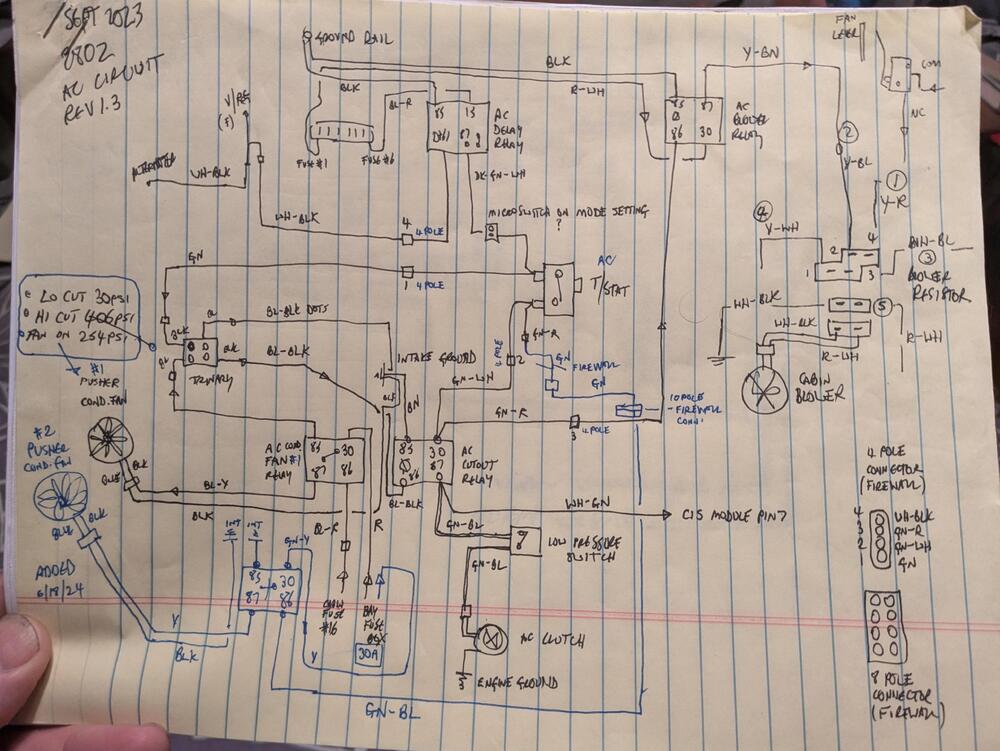 SEPT 2023
8802
AC CIRCUIT
REV 1.3
GROUND RAIL
BLK
BLK
BL-R
FUSE #1
FUSE #6
85
15
87
AC
DELAY
RELAY
DK-GN-WH
R-WH
85
87
86
30
AC
BLOWER
RELAY
Y-GN
FAN
LEVER
COM
NC
2
Y-BL
1
Y-R
ALTERNATOR
WH-BLK
WH-BLK
4
4 POLE
MICROSWITCH ON MODE SETTING
?
GN
1
4 POLE
AC
T/STAT
4
Y-WH
2
4
1
3
3
BLOWER
RESISTOR
WH-BLK
5
WH-BLK
R-WH
R-WH
CABIN
BLOWER
LO CUT 30PSI
HI CUT 406PSI
FAN ON 254PSI
BLK
BL-BLK DOTS
BL-BLK
TRINARY
INTAKE GROUND
BN
4 POLE
2
GN-R
GN
FIREWALL
GN
GN-WH
GN-R
3
4 POLE
10 POLE
- FIREWALL
CONN.
#1
PUSHER
COND. FAN
#2
PUSHER
COND. FAN
BLK
BLUE
BL-Y
BLK
AC COND.
FAN #1
RELAY
85
30
87
86
85
30
87
86
AC
CUTOUT
RELAY
BL-BLK
BL-R
R
WH-GN
CIS MODULE PIN 7
GN-BL
GN-BL
LOW PRESSURE
SWITCH
BLK
BLUE
GN-Y
85
30
87
86
ADDED
6/18/24
Y
BLK
FUSE
#16
BAY
FUSE
BOX
30A
Y
AC CLUTCH
ENGINE GROUND
GN-BL
4 POLE
CONNECTOR
(FIREWALL)
4
3
2
1
WH-BLK
GN-R
GN-WH
GN
8 POLE
CONNECTOR
(FIREWALL)